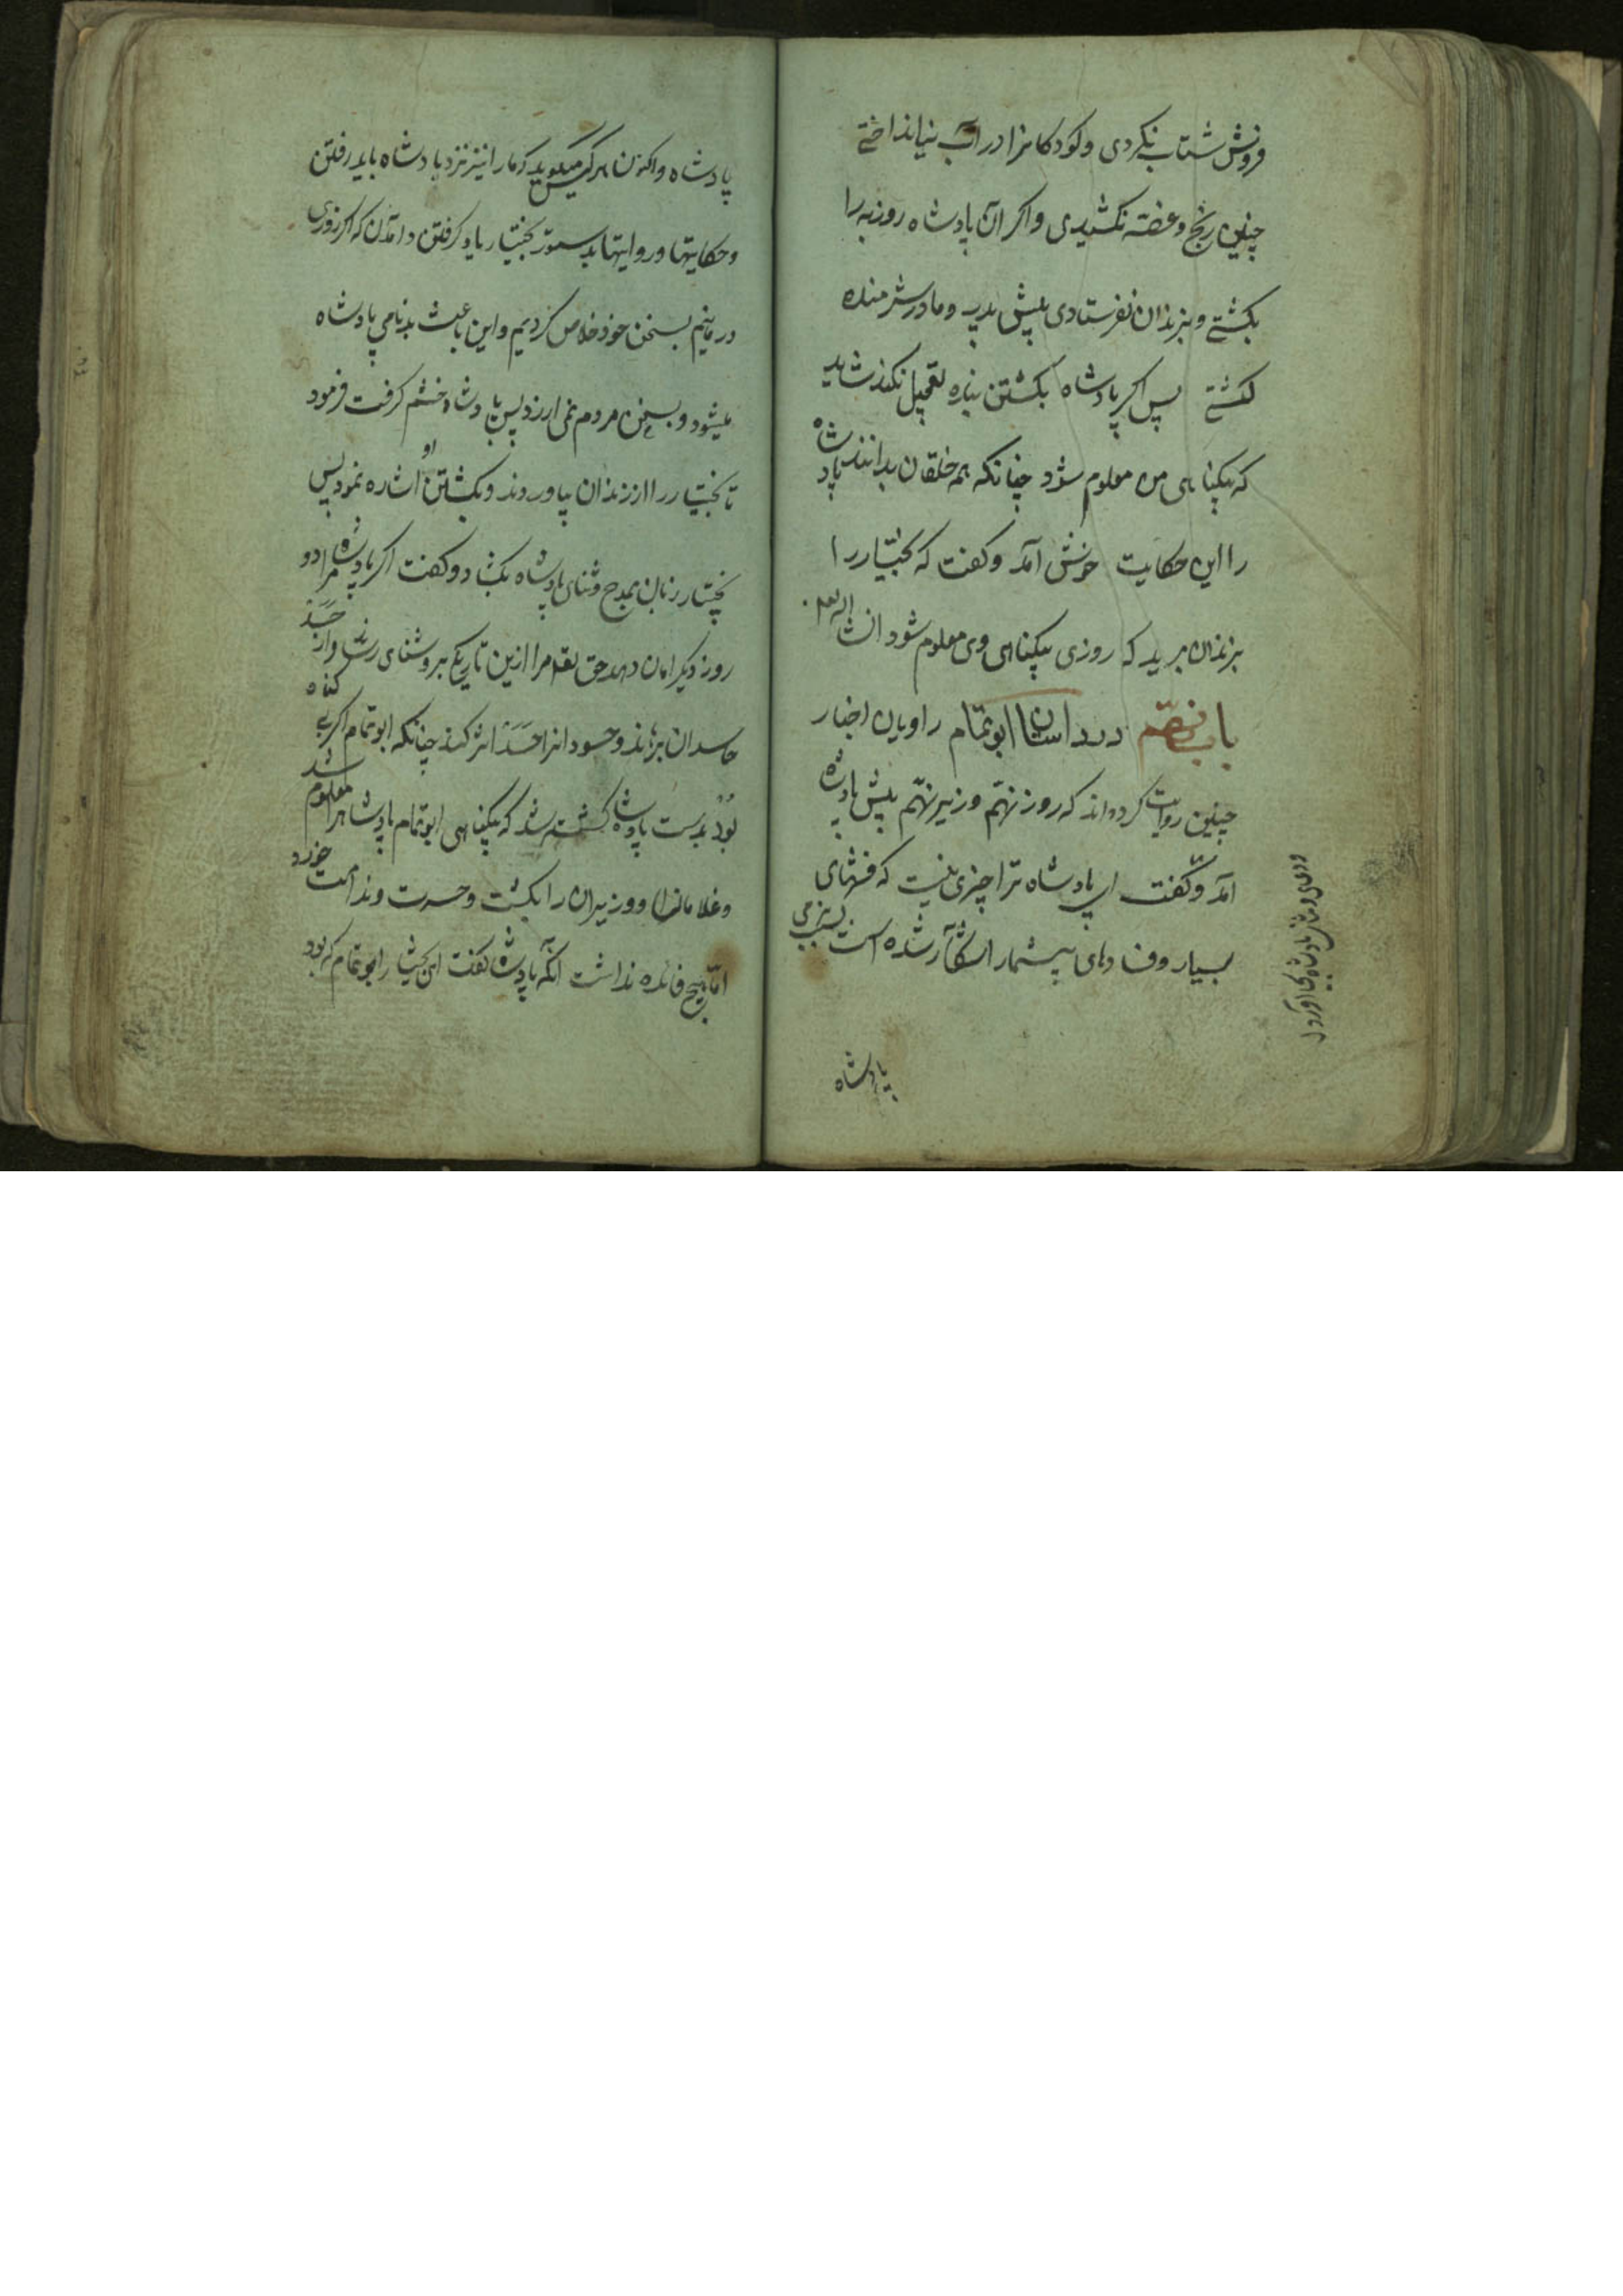 فروش شتاب نکردی و کودکانرا در آب نینداختی
چنین رنج و غصّه نکشیدی و اکر آن پادشاه روزبه را
بکشتی و بزندان نفرستادی پیش پدر و مادر شرمنده
کشتی پس اکر پادشاه بکشتن بنده تعجیل نکند شاید
که بیکناهی من معلوم شود چنانکه همه خلقان بدانند پادشاه
را این حکایت خوش آمد و کفت که بختیار را
بزندان برید که روزی بیکناهی وی معلوم شود انشا الله تعم
باب نهم در داستان ابوتمّام راویان اخبار
چنین روایت کرده‌اند که روز نهم وزیر نهم پیش پادشاه
آمد و کفت ای پادشاه ترا چیزی نیست که فتنهای
بسیار و فسادهای بیشمار آشکارا شده است
پادشاه
پادشاه و اکنون هرکس میکوید که مارا نیز نزد پادشاه باید رفتن
و حکایتها و روایتها بدستور بختیار یاد کرفتن و آمدن که اکر روزی
در مانیم بسخن خود خلاص کردیم و این باعث بدنامی پادشاه
میشود و بسخن مردم نمی ارزد پس پادشاه خشم کرفت فرمود
تا بختیار را از زندان بیاوردند و بکشتن او اشاره نمود پس
بختیار زبان بمدح و ثنای پادشاه بکشاد و کفت اکر پادشاه مرا دو
روز دیکر امان دهد حق تعم مرا ازین تاریکی بروشنای رساند و از حسد
حاسدان برهاند و حسودانرا حسد اثر کند چنانکه ابوتمام اکر بی کناه
بود بدست پادشاه کشته شد که بیکناهی ابوتمام پادشاهرا معلوم شد
و غلامانرا و وزیران را بکشت و حسرت و ندامت خورد
امّا هیچ فائده نداشت آنکه پادشاه کفت ای بختیار ابوتمام که بود